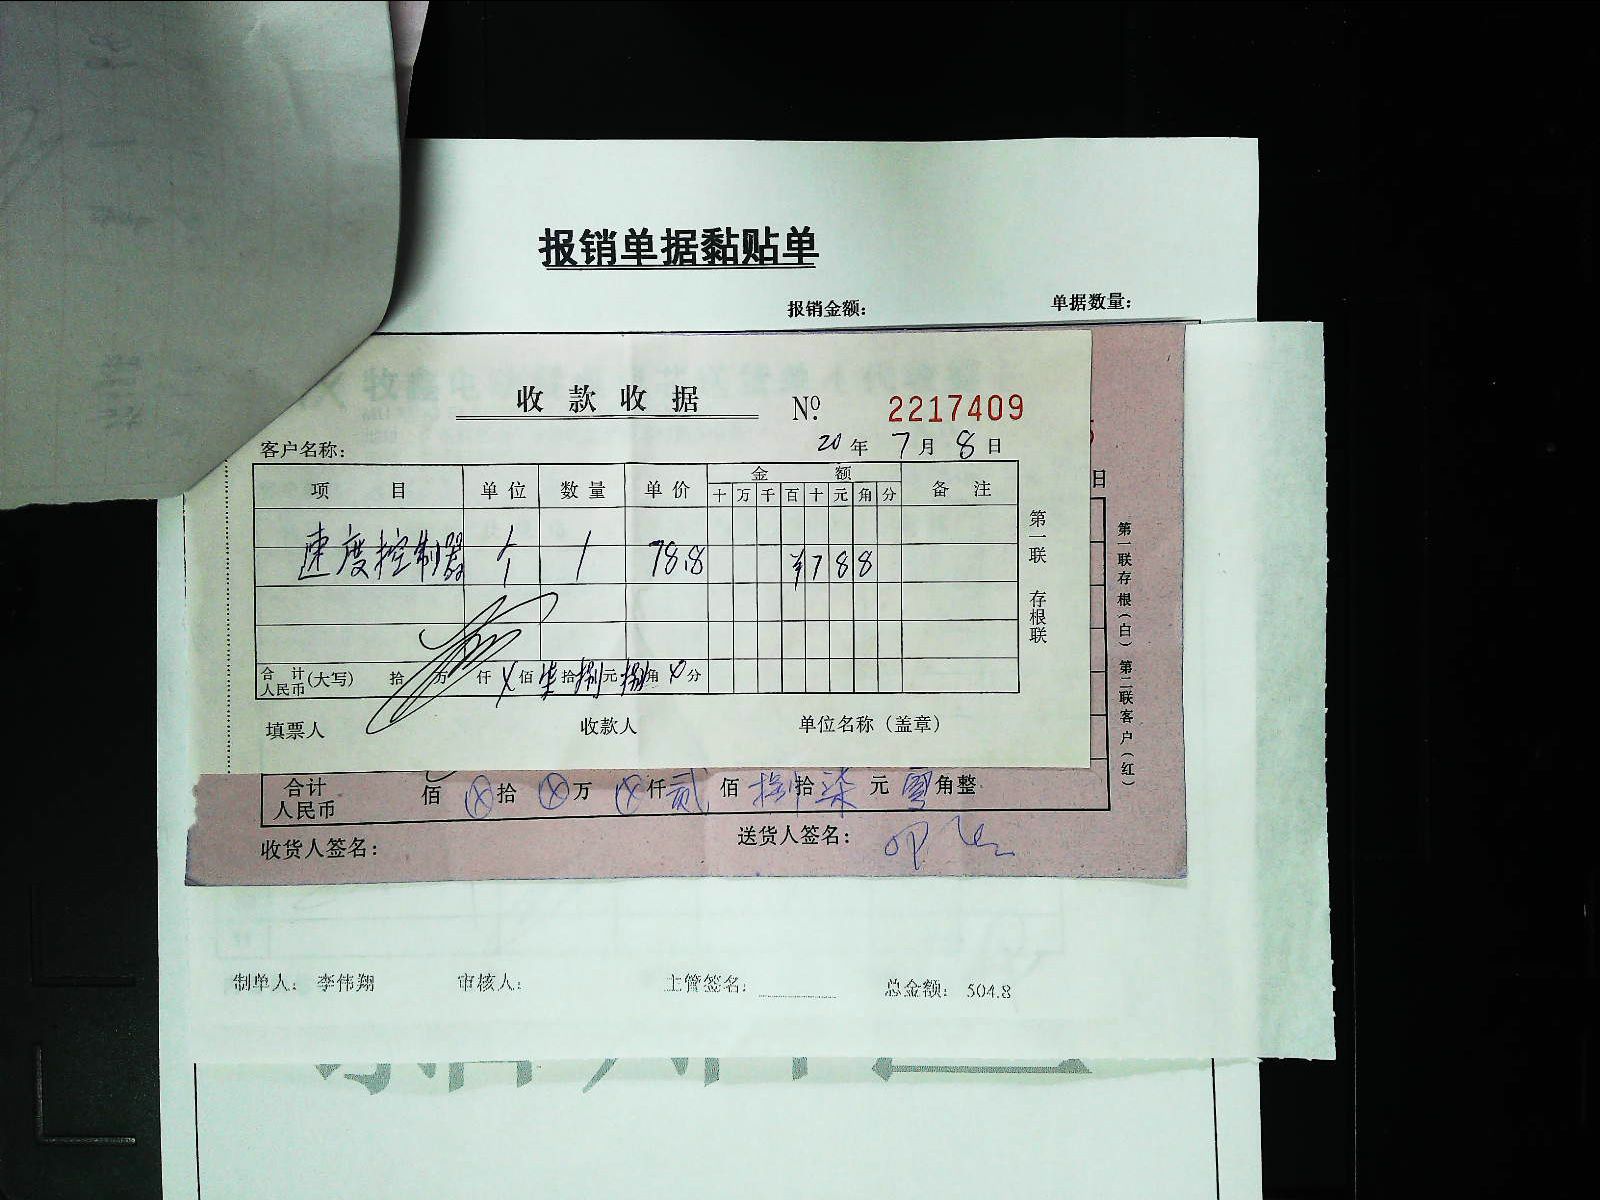 报销单据黏贴单
报销金额: 单据数量:
收款收据 Nº 2217409
客户名称: 20年7月8日
日
项目 单位 数量 单价 金额 备注
十 万 千 百 十 元 角 分
速度控制器 个 1 78.8 ¥788
合计人民币(大写) 拾 万 仟 X佰 柒拾 捌元 捌角 X分
第一联 存根联
填票人 收款人 单位名称(盖章)
第一联存根(白) 第二联客户(红)
合计人民币 佰 ⊗拾 ⊗万 ⊗仟 贰佰 捌拾 柒元 零角整
收货人签名: 送货人签名:
制单人: 李伟翔 审核人: 主管签名: 总金额: 504.8